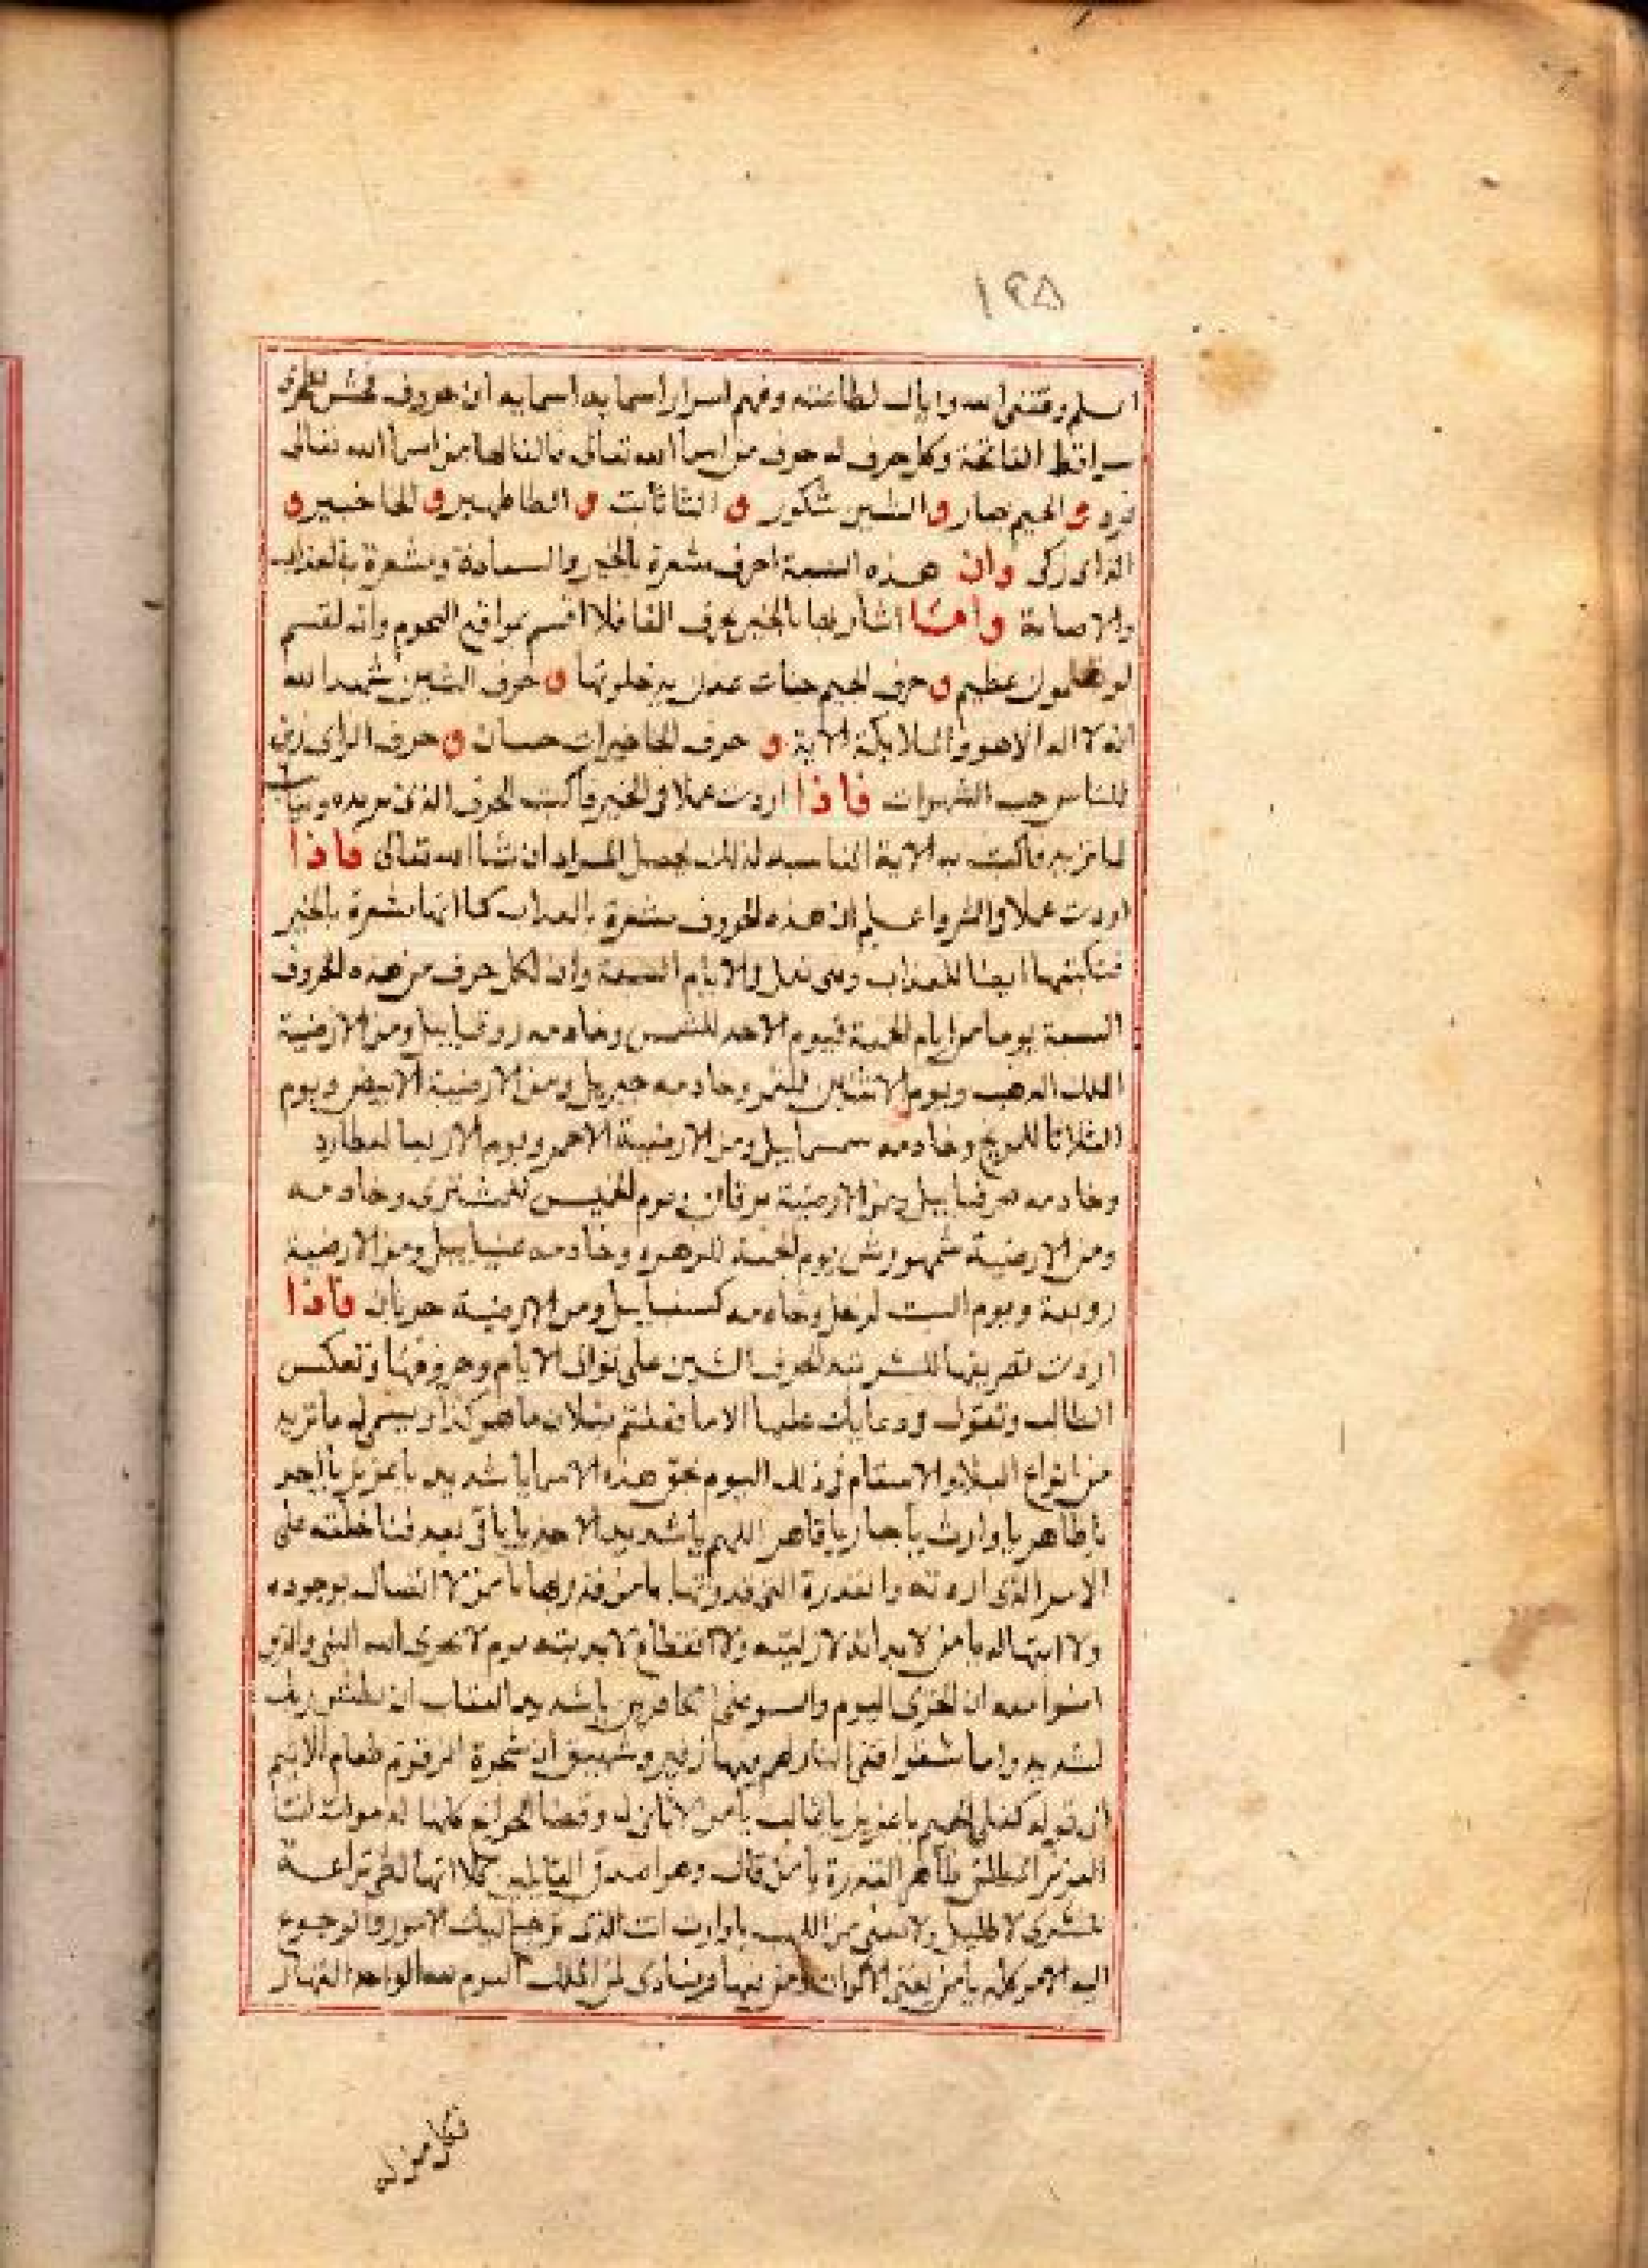 ١٢٥
اعلم وفقني الله واياك لطاعته وفهم اسرار اسمايه ان حروف
سواقط الفاتحة وكل حرف له حرف من اسما الله تعالى فالفا لها من اسما الله تعالى
فرد و الجيم جبار و الشين شكور و الثا ثابت و الظا ظهير و الخا خبير و
الزاى زكى وان هذه السبعة احرف مشعرة بالخير والسعادة ومشعرة بالعذاب
والاهانة واما اشارتها بالخير حرف الفا فلا اقسم بمواقع النجوم وانه لقسم
لو تعلمون عظيم و حرف الجيم جنات عدن يدخلونها و حرف الشين شهد الله
انه لا اله الا هو والملايكة الاية و حرف الخا خيرات حسان و حرف الزاى زين
للناس حب الشهوات فاذا اردت عملا فى الخير فاكتب الحرف الذى تريده
لما تريد فاكتب به الاية المناسبة لذلك يحصل المراد ان شا الله تعالى فاذا
اردت عملا فى الشر واعلم ان هذه الحروف مشعرة بالعذاب كما انها مشعرة بالخير
فتكتبها ايضا للعذاب وهى تعمل فى الايام السبعة وان لكل حرف من هذه الحروف
السبعة يوما من ايام الجمعة فيوم الاحد للشمس وخادمه روقياييل ومن الارضية
الملك المذهب ويوم الاثنين للقمر وخادمه جبريل ومن الارضية الابيض ويوم
الثلاثا للمريخ وخادمه سمساييل ومن الارضية الاحمر ويوم الاربعا لعطارد
وخادمه ميكاييل ومن الارضية برقان ويوم الخميس للمشترى وخادمه
ومن الارضية شمهورش يوم الجمعة للزهره وخادمه عنياييل ومن الارضية
زوبعة ويوم السبت لزحل وخادمه كسفياييل ومن الارضية فاذا
اردت تصريفها للشر فتبدا بحرف الشين على توالى الايام وحروفها وتعكس
الطالب وتقول فى دعايك عليها الا ما فعلتم بفلان ما هو كذا وتسمى له ما تريد
من انواع البلا والاسقام فى ذلك اليوم بحق هذه الاسما يا شديد يا عزيز يا
يا ظاهر يا وارث يا جبار يا قاهر اللهم يا شديد الاخذ يا باقى بعد فنا خلقه على
الامر الذى اردته والقدرة التى قدرتها يا من لا اتصال بوجوده
ولا انتها له يا من لا بداية لازليته ولا انقطاع لابديته يوم لا يخزى الله النبى والذين
امنوا معه ان الخزى اليوم والسو على الكافرين يا شديد العقاب ان بطش ربك
لشديد واما الذين شقوا ففى النار لهم فيها زفير وشهيق ان شجرة الزقوم طعام الاثيم
الى قوله كغلى الحميم يا عزيز يا غالب يا من وقضا الحوايج كلها انت
العزيز المطلق ظاهر القدرة يا من قال وهو اصدق القايلين كلا انها لظى نزاعة
للشوى لا ظليل ولا يغنى من اللهب يا وارث انت الذى ترجع اليك الامور واليه يرجع
اليه الامر كله يا من يفنى الاكوان ومن فيها وينادى لمن الملك اليوم لله الواحد القهار